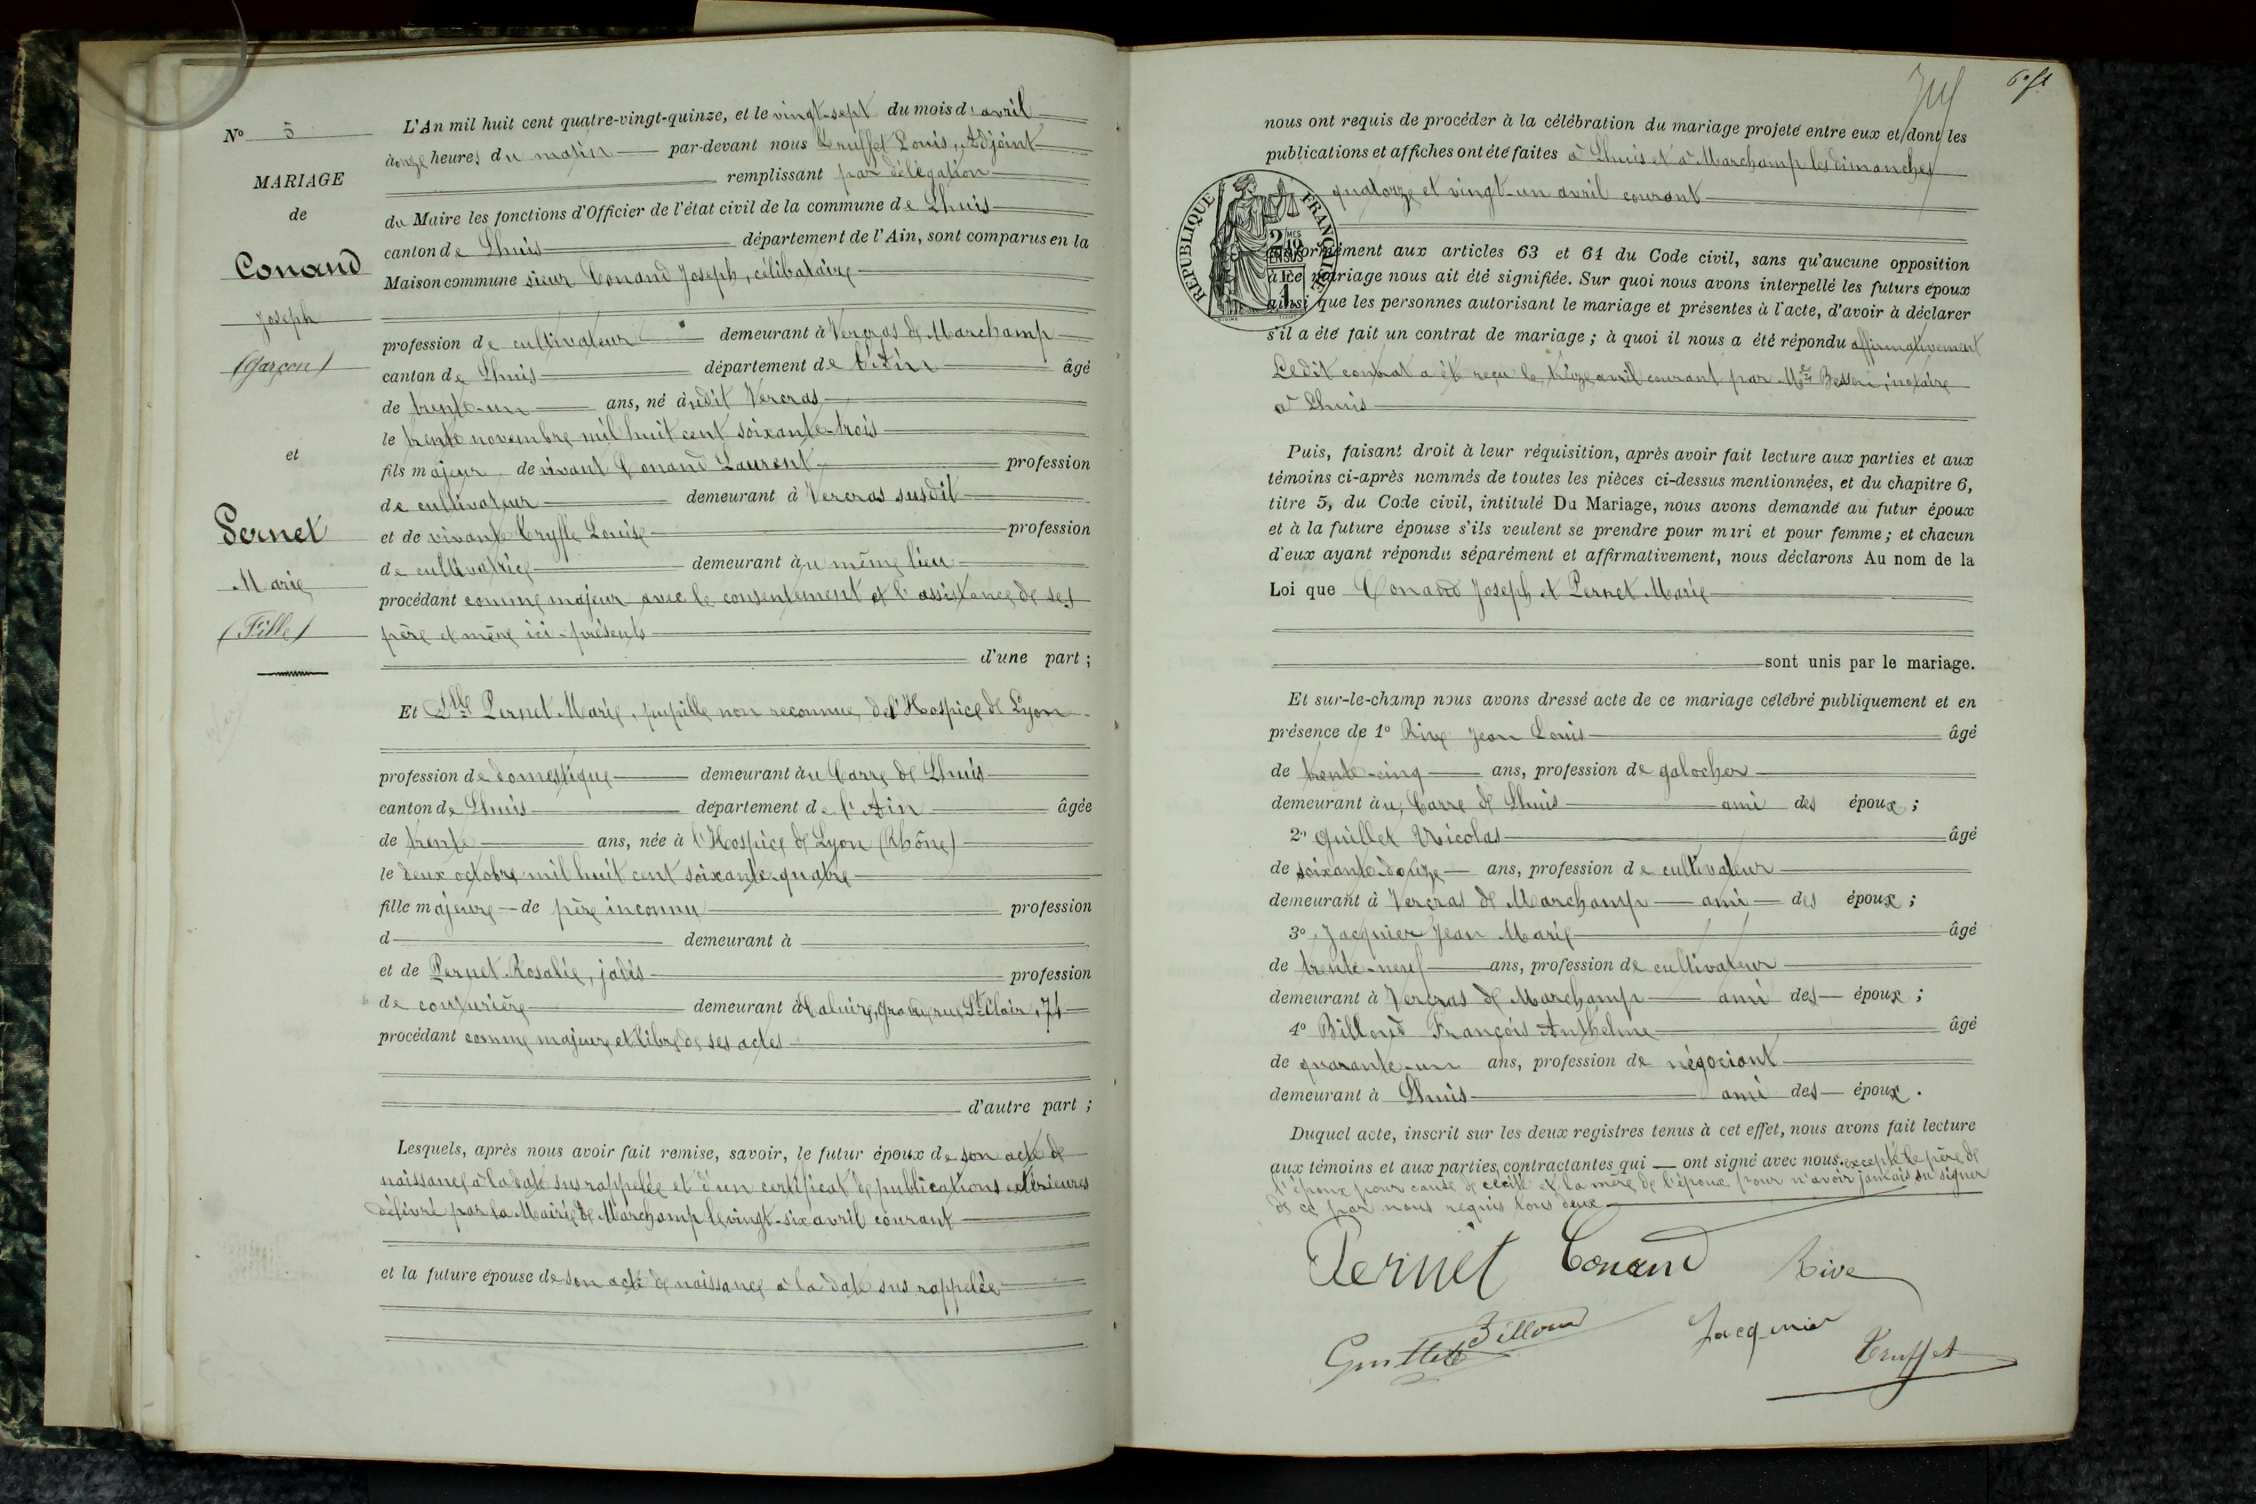 N° 5
MARIAGE
de
Conand
Joseph
(Garçon)
et
Pernet
Marie
(Fille)
L'An mil huit cent quatre-vingt-quinze, et le vingt-sept du mois d'avril
à onze heures du matin par-devant nous Truffet Louis, Adjoint
remplissant par délégation
du Maire les fonctions d'Officier de l'état civil de la commune de Lhuis
canton de Lhuis département de l'Ain, sont comparus en la
Maison commune sieur Conand Joseph, célibataire
profession de cultivateur demeurant à Vercras de Marchamp
canton de Lhuis département de l'Ain âgé
de trente-un ans, né àudit Vercras
le trente novembre mil huit cent soixante-trois
fils majeur de vivant Conand Laurent profession
de cultivateur demeurant à Vercras susdit
et de vivante Louise profession
de cultivatrice demeurant àu même lieu
procédant comme majeur avec le consentement et l'assistance de ses
père et mère ici-présents
d'une part ;
Et Dlle Pernet Marie, pupille non reconnue, de l'Hospice de Lyon
profession de domestique demeurant àu Carre de Lhuis
canton de Lhuis département de l'Ain âgée
de trente ans, née à l'Hospice de Lyon (Rhône)
le deux octobre mil huit cent soixante-quatre
fille majeure de père inconnu profession
d demeurant à
et de Pernet Rosalie, jadis profession
de couturière demeurant à Caluire, Grande rue St Clair, 74
procédant comme majeure et libre de ses actes
d'autre part ;
Lesquels, après nous avoir fait remise, savoir, le futur époux de son acte de
naissance à la date sus rappelée et d'un certificat de publications extérieures
délivré par la Mairie de Marchamp le vingt-six avril courant
et la future épouse de son acte de naissance à la date sus rappelée
nous ont requis de procéder à la célébration du mariage projeté entre eux et dont les
publications et affiches ont été faites à Lhuis et à Marchamp les dimanches
quatorze et vingt-un avril courant
RÉPUBLIQUE FRANÇAISE
2/10 EN SUS
conformément aux articles 63 et 64 du Code civil, sans qu'aucune opposition
à ce mariage nous ait été signifiée. Sur quoi nous avons interpellé les futurs époux
ainsi que les personnes autorisant le mariage et présentes à l'acte, d'avoir à déclarer
s'il a été fait un contrat de mariage ; à quoi il nous a été répondu affirmativement
Ledit contrat a été reçu le treize avril courant par Me Besson, notaire
à Lhuis
Puis, faisant droit à leur réquisition, après avoir fait lecture aux parties et aux
témoins ci-après nommés de toutes les pièces ci-dessus mentionnées, et du chapitre 6,
titre 5, du Code civil, intitulé Du Mariage, nous avons demandé au futur époux
et à la future épouse s'ils veulent se prendre pour mari et pour femme ; et chacun
d'eux ayant répondu séparément et affirmativement, nous déclarons Au nom de la
Loi que Conand Joseph et Pernet Marie
sont unis par le mariage.
Et sur-le-champ nous avons dressé acte de ce mariage célébré publiquement et en
présence de 1° Rive Jean Louis âgé
de trente-cinq ans, profession de galocher
demeurant àu Carre de Lhuis ami des époux ;
2° Guillet Nicolas âgé
de soixante-douze ans, profession de cultivateur
demeurant à Vercras de Marchamp ami des époux ;
3° Jacquier Jean Marie âgé
de trente-neuf ans, profession de cultivateur
demeurant à Vercras de Marchamp ami des époux ;
4° Billoud François Anthelme âgé
de quarante-un ans, profession de négociant
demeurant à Lhuis ami des époux.
Duquel acte, inscrit sur les deux registres tenus à cet effet, nous avons fait lecture
aux témoins et aux parties contractantes qui ont signé avec nous, excepté le père de
l'époux pour cause de cécité et la mère de l'époux pour n'avoir jamais su signer
de ce par nous requis tous deux
Pernet Conand Rive
Guillet Billoud Jacquier Truffet